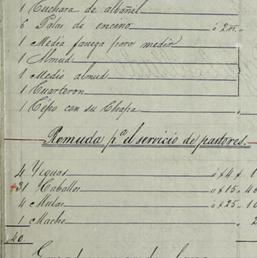 1 Cuchara de albañil
6 Palas de encino á 2
1 Media fanega para medir
1 Almud
1 Medio almud
1 Cuarteron
1 Cepo con su Chapa
Remuda pa el servicio de pastores.
4 Yeguas á $4
31 Caballos á $15
4 Mulas á $25
1 Macho
40